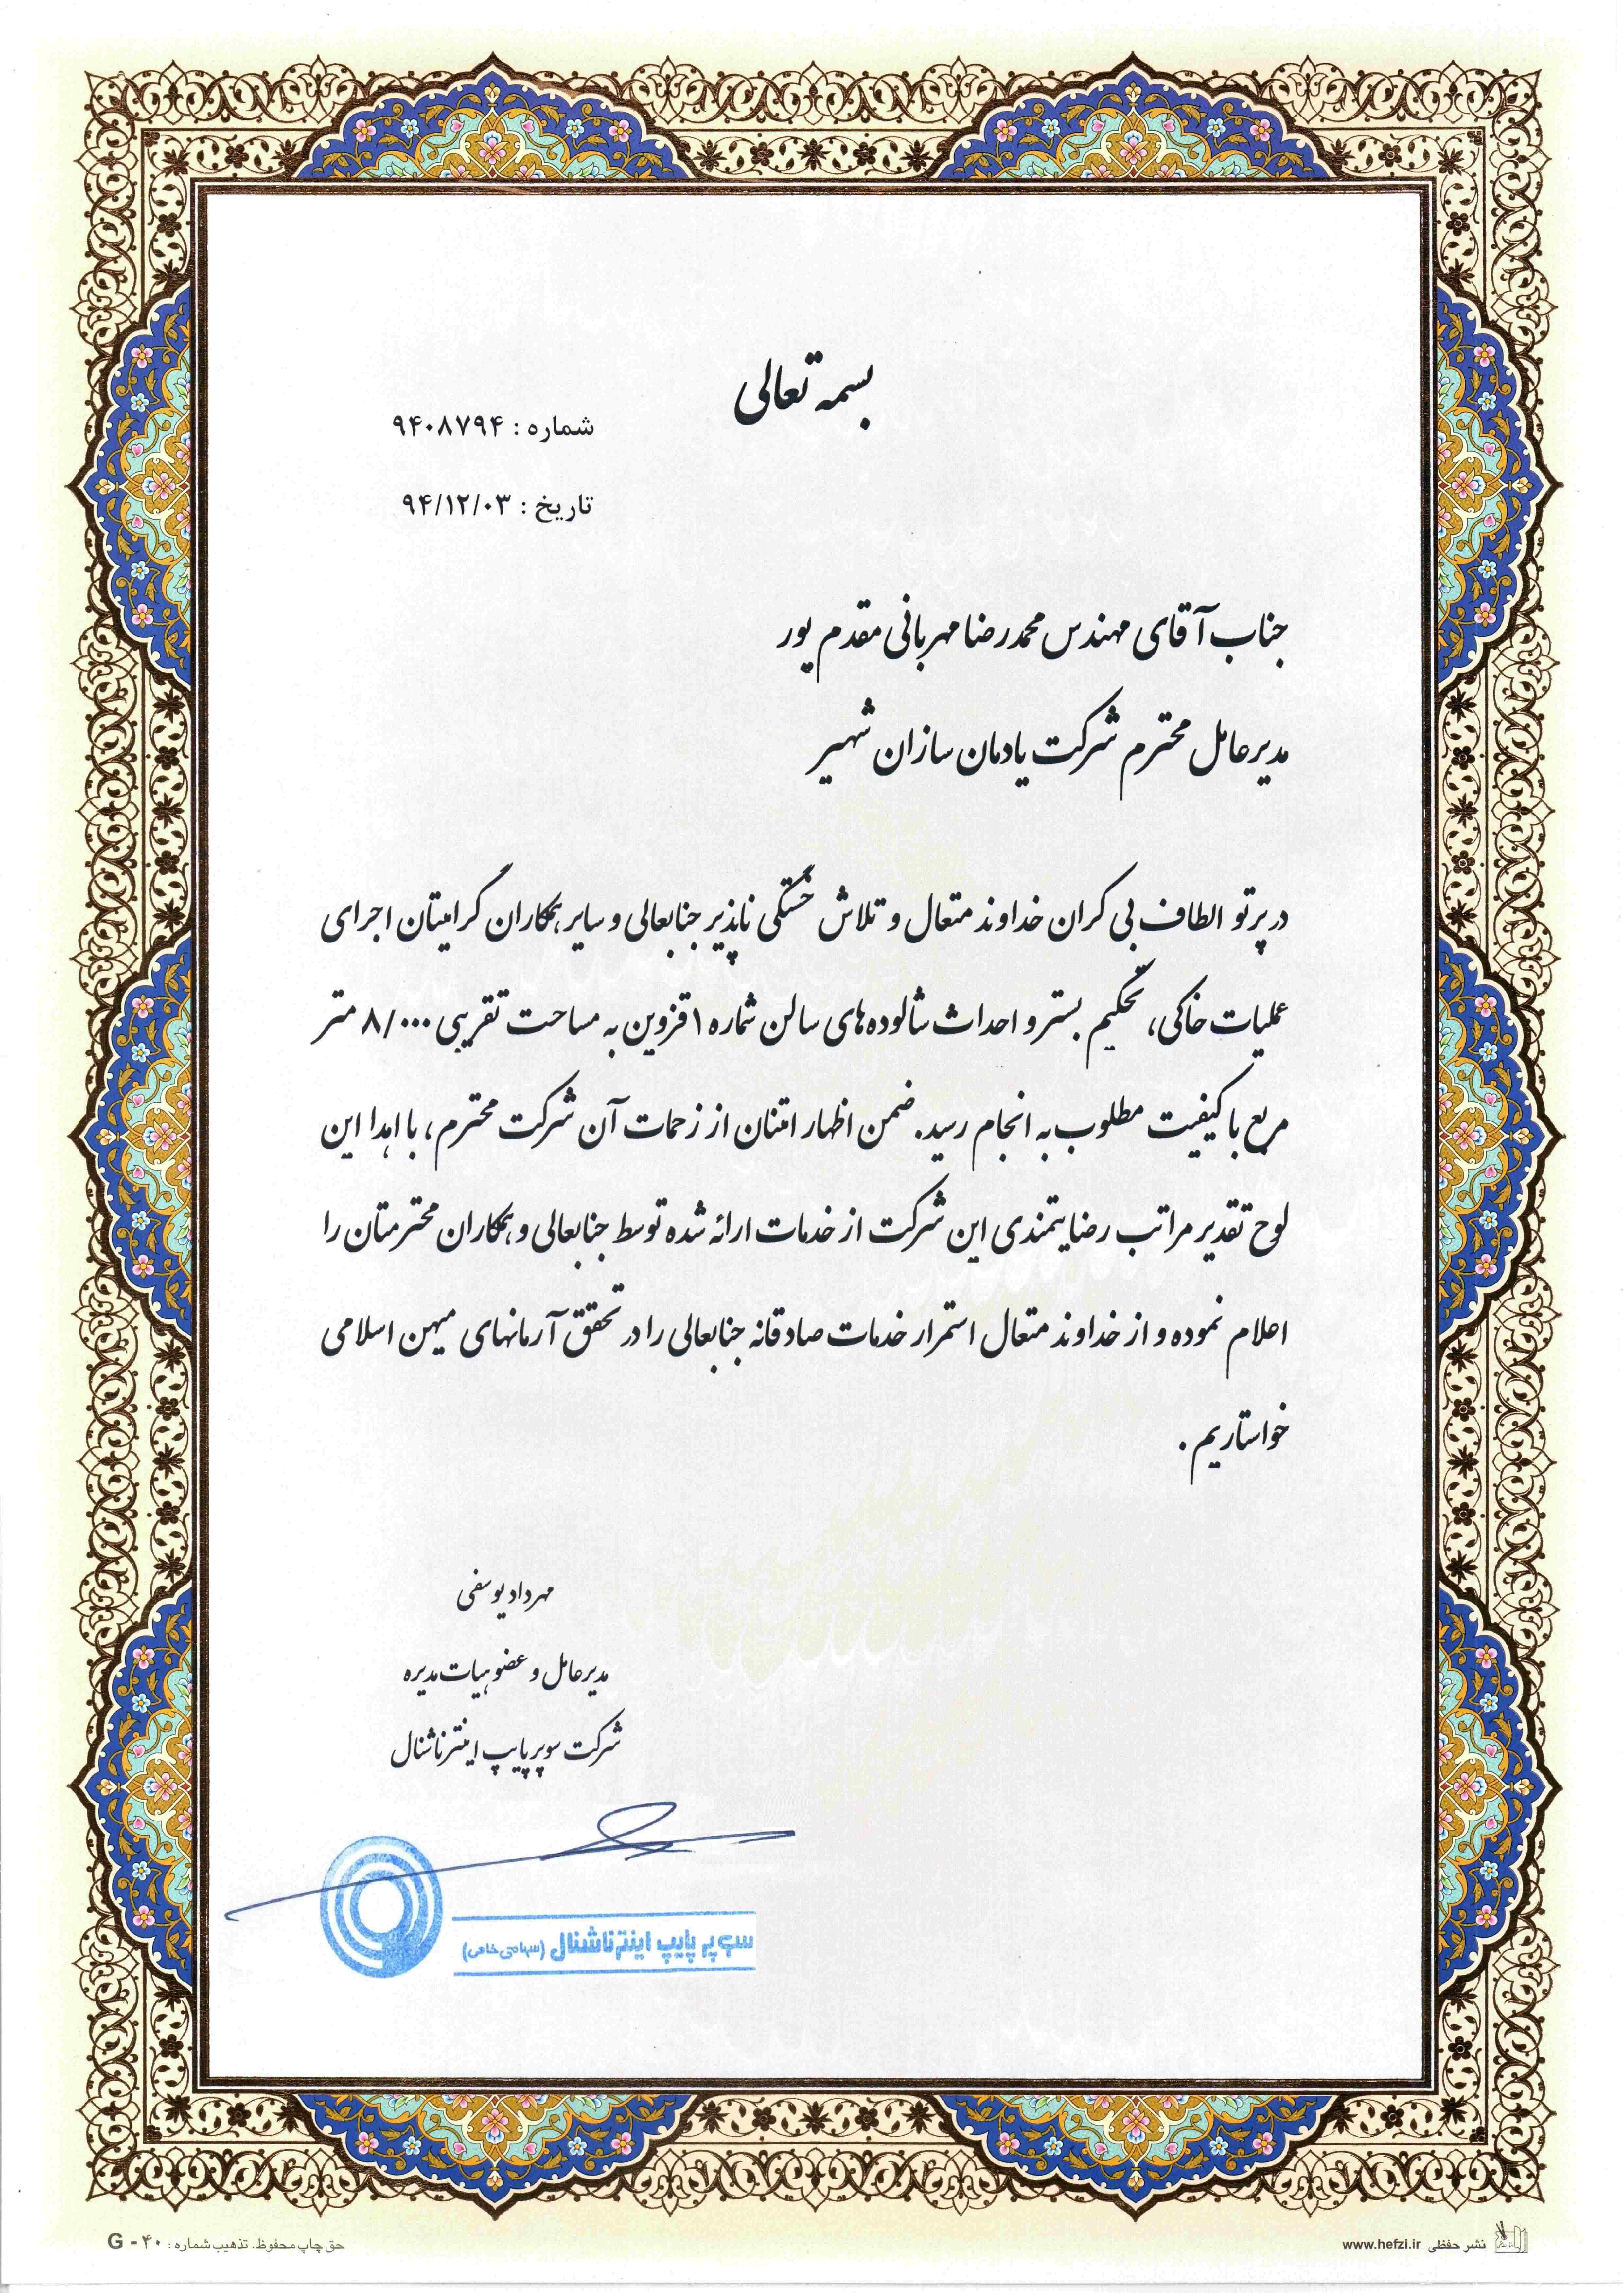 بسمه تعالی
شماره : ۹۴۰۸۷۹۴
تاریخ : ۹۴/۱۲/۰۳
جناب آقای مهندس محمدرضا مهربانی مقدم پور
مدیرعامل محترم شرکت یادمان سازان شهیر
در پرتو الطاف بی کران خداوند متعال و تلاش خستگی ناپذیر جنابعالی و سایر همکاران گرامیتان اجرای
عملیات خاکی، تحکیم بستر و احداث شالوده‌های سالن شماره ۱ قزوین به مساحت تقریبی ۸/۰۰۰ متر
مربع با کیفیت مطلوب به انجام رسید. ضمن اظهار امتنان از زحمات آن شرکت محترم، با اهدا این
لوح تقدیر مراتب رضایتمندی این شرکت از خدمات ارائه شده توسط جنابعالی و همکاران محترمتان را
اعلام نموده و از خداوند متعال استمرار خدمات صادقانه جنابعالی را در تحقق آرمانهای میهن اسلامی
خواستاریم .
مهرداد یوسفی
مدیرعامل و عضو هیات مدیره
شرکت سوپرپایپ اینترناشنال
سوپر پایپ اینترناشنال (سهامی خاص)
نشر حفظی www.hefzi.ir
حق چاپ محفوظ. تذهیب شماره : G - ۴۰